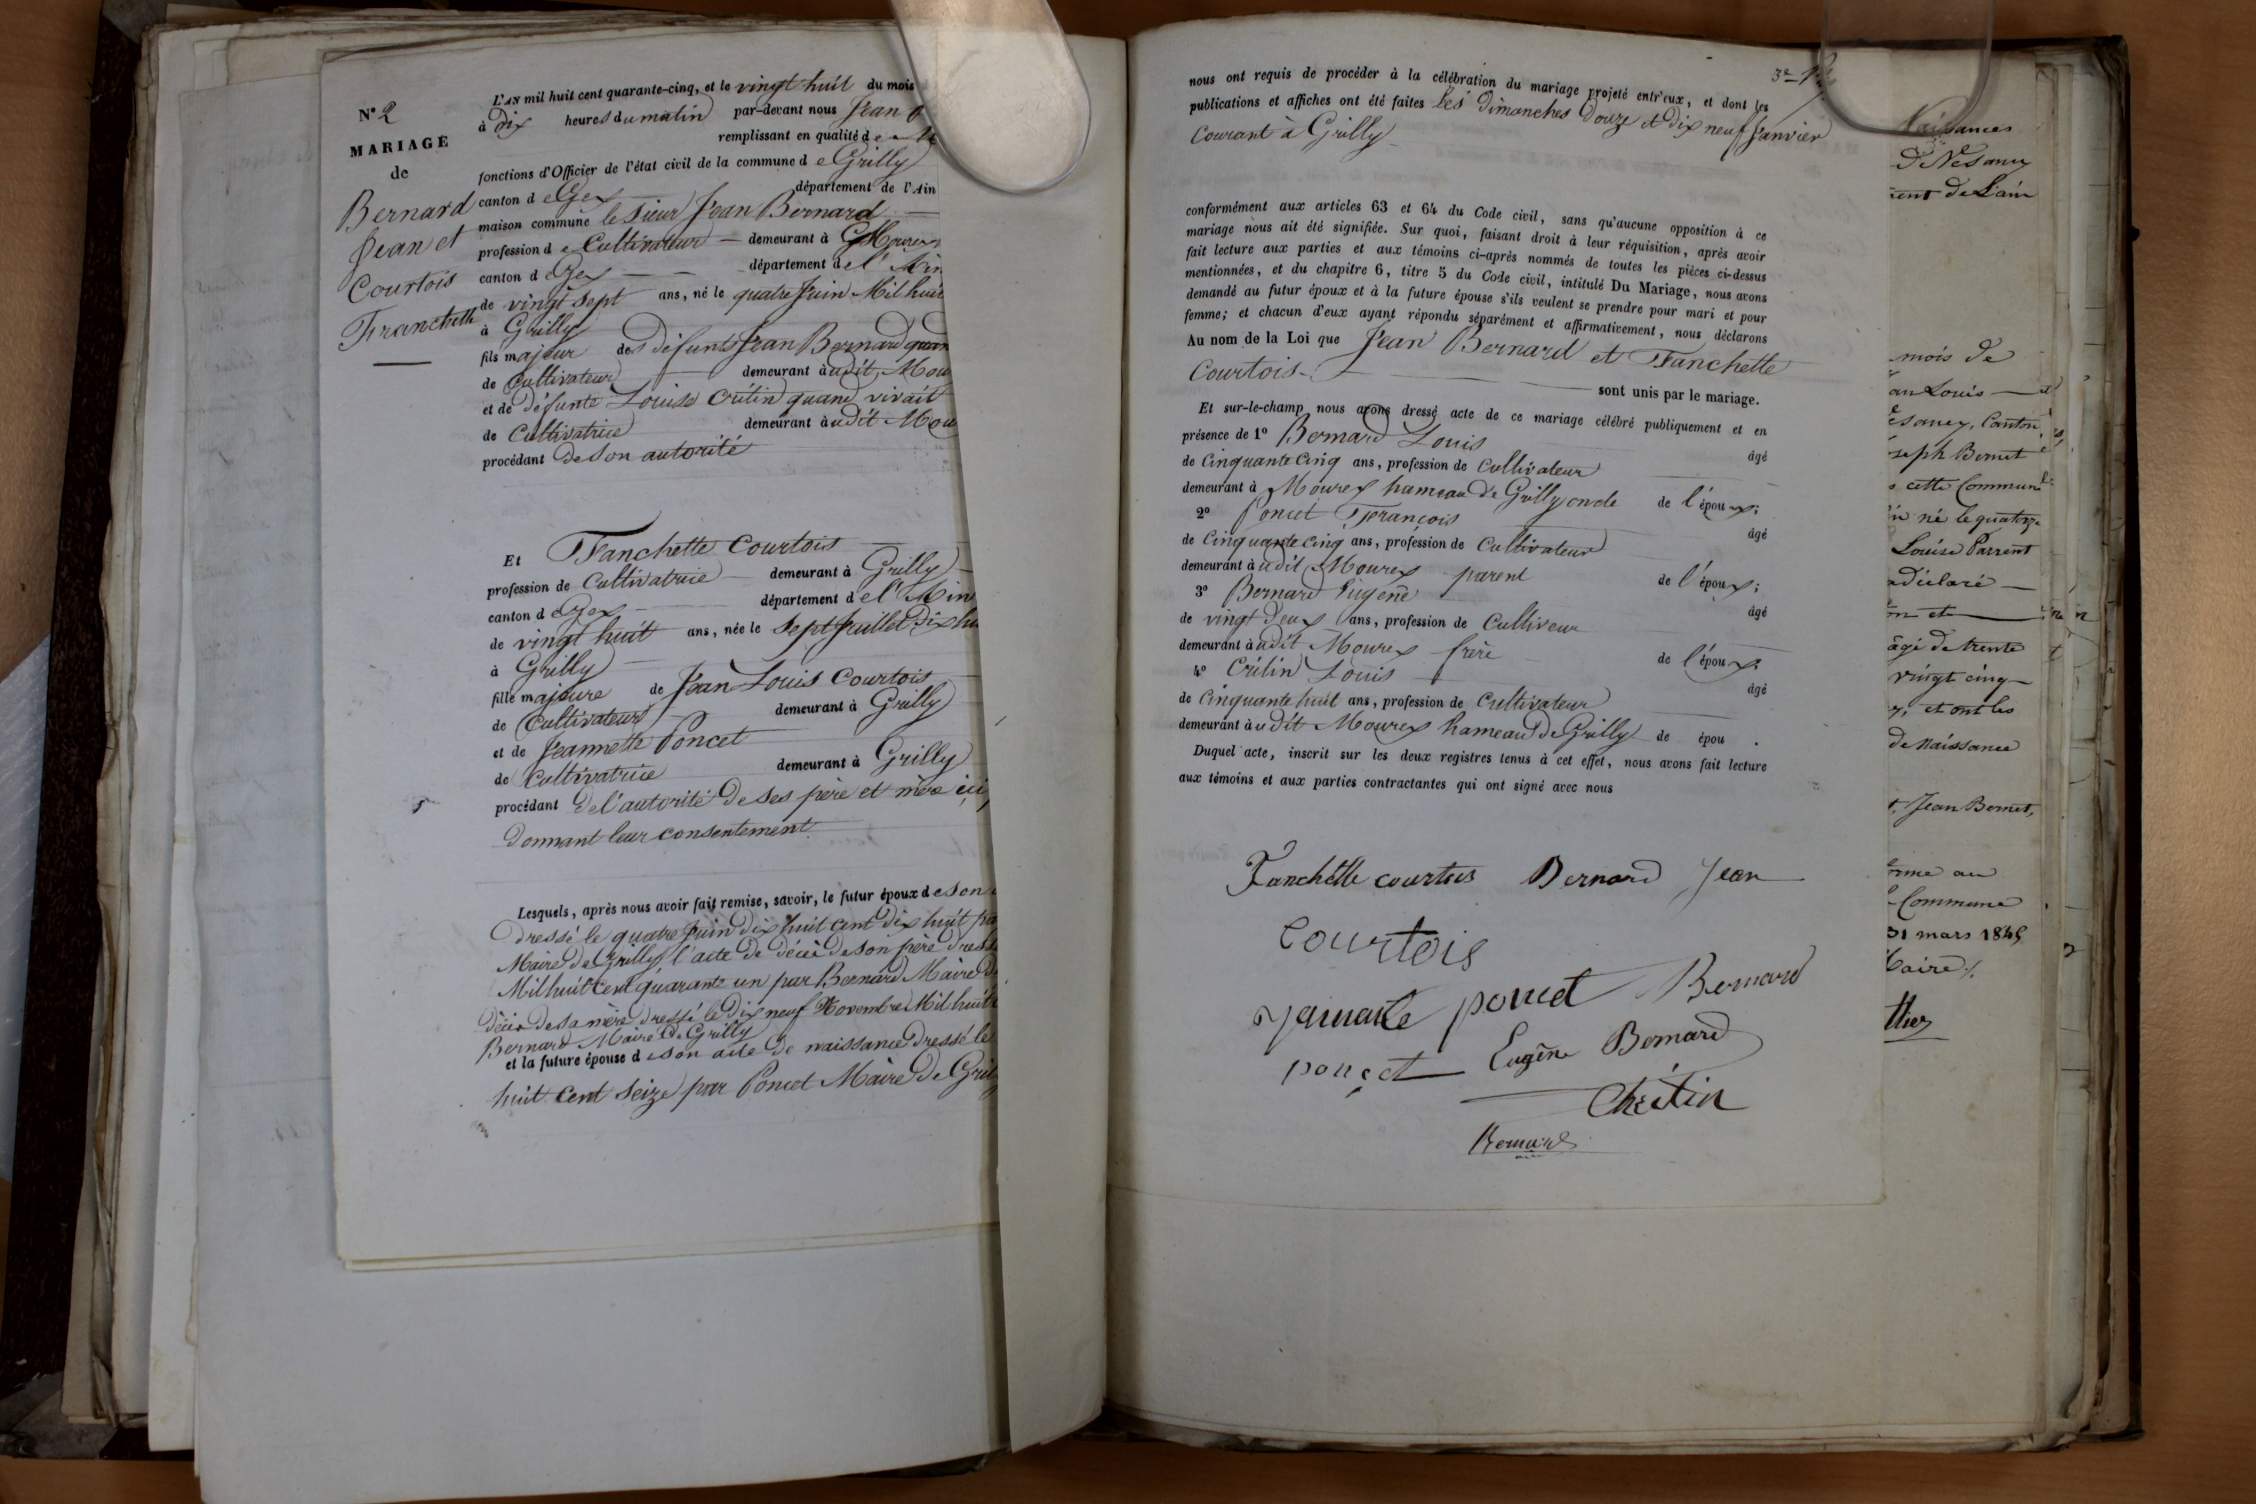 N° 2
MARIAGE
de
Bernard
Jean et
Courtois
Franchette
L'AN mil huit cent quarante-cinq, et le vingt huit du mois
à dix heures du matin par-devant nous Jean
remplissant en qualité de
fonctions d'Officier de l'état civil de la commune d e Grilly
canton d e Gex département de l'Ain
maison commune le sieur Jean Bernard
profession d e Cultivateur demeurant à Mourex
canton d e Gex département d e l'Ain
de vingt sept ans, né le quatre Juin Mil huit
à Grilly
fils majeur des défunts Jean Bernard quan
de Cultivateur demeurant à udit Mou
et de défunte Louise Crétin quand vivait
de Cultivatrice demeurant à udit Mou
procédant de son autorité
Et Fanchette Courtois
profession de Cultivatrice demeurant à Grilly
canton d e Gex département d e l'Ain
de vingt huit ans, née le sept Juillet Dix hu
à Grilly
fille majeure de Jean Louis Courtois
de Cultivateur demeurant à Grilly
et de Jeannette Poncet
de Cultivatrice demeurant à Grilly
procédant de l'autorité de ses père et mère ici
donnant leur consentement
Lesquels, après nous avoir fait remise, savoir, le futur époux d e son
dressé le quatre Juin dix huit cent dix huit pa
Maire de Grilly l'acte de décès de son père dressé
Mil huit cent quarante un par Bernard Maire de
décès de sa mère dressé le dix neuf Novembre Mil huit
Bernard Maire de Grilly
et la future épouse d e son acte de naissance dressé le
huit cent seize par Poncet Maire de Gril
3e
nous ont requis de procéder à la célébration du mariage projeté entr'eux, et dont les
publications et affiches ont été faites les Dimanches Douze et dix neuf Janvier
Courant à Grilly
conformément aux articles 63 et 64 du Code civil, sans qu'aucune opposition à ce
mariage nous ait été signifiée. Sur quoi, faisant droit à leur réquisition, après avoir
fait lecture aux parties et aux témoins ci-après nommés de toutes les pièces ci-dessus
mentionnées, et du chapitre 6, titre 5 du Code civil, intitulé Du Mariage, nous avons
demandé au futur époux et à la future épouse s'ils veulent se prendre pour mari et pour
femme; et chacun d'eux ayant répondu séparément et affirmativement, nous déclarons
Au nom de la Loi que Jean Bernard et Fanchette
Courtois
sont unis par le mariage.
Et sur-le-champ nous avons dressé acte de ce mariage célébré publiquement et en
présence de 1° Bernard Louis âgé
de Cinquante Cinq ans, profession de Cultivateur
demeurant à Mourex hameau de Grilly oncle de l'époux;
2° Poncet François âgé
de Cinquante cinq ans, profession de Cultivateur
demeurant à udit Mourex parent de l'époux;
3° Bernard Eugène âgé
de vingt Deux ans, profession de Cultiveur
demeurant à udit Mourex frère de l'époux;
4° Crétin Louis âgé
de Cinquante huit ans, profession de Cultivateur
demeurant à udit Mourex hameau de Grilly de épou .
Duquel acte, inscrit sur les deux registres tenus à cet effet, nous avons fait lecture
aux témoins et aux parties contractantes qui ont signé avec nous
Fanchette courtois Bernard Jean
Courtois
poncet Bernard
poncet Eugène Bernard
Chrétin
Bernard
Naissances
mois de
an Louis
Canton
seph Bernet
cette Commune
né le quatorze
Louise Parrent
a déclaré
on et
âgé de trente
vingt cinq
et ont les
de naissance
Jean Bernet,
orme au
Commune
31 mars 1845
Maire